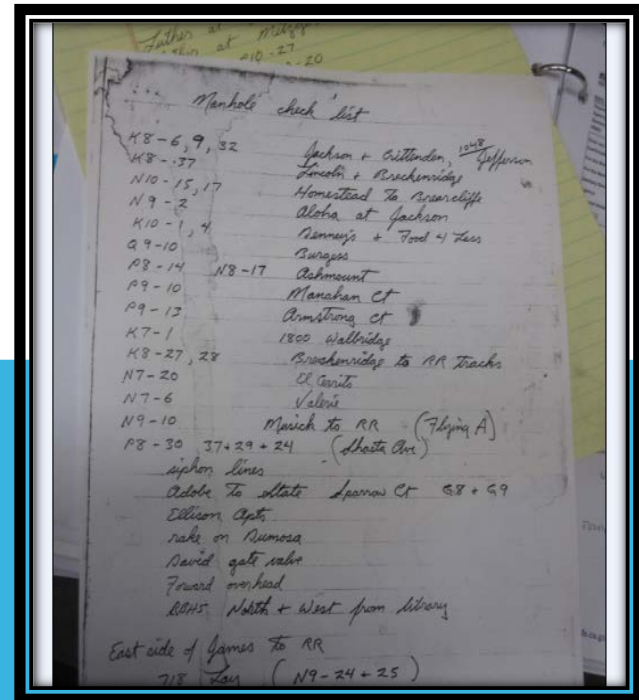 Father at
at
-10-27
-20
Manhole check list
K8-6, 9, 32 Jackson + Crittenden, 1048 Jefferson
K8-37 Lincoln + Breckenridge
N10-15, 17 Homestead To Brearcliffe
N9-2 Aloha at Jackson
K10-1, 4 Denney's + Food 4 Less
Q9-10 Burgess
P8-14 N8-17 Ashmount
P9-10 Manahan Ct
P9-13 Armstrong Ct
K7-1 1800 Walbridge
K8-27, 28 Breckenridge to RR tracks
N7-20 El Cerrito
N7-6 Valerie
N9-10 Musick to RR (Flying A)
P8-30 37+29+24 (Shasta Ave)
siphon lines
Adobe To State Sparrow Ct G8 + G9
Ellison Apts
rake on Dumosa
David gate valve
Forward overhead
RBHS North + West from library
East side of James To RR
718 Lay (N9-24+25)